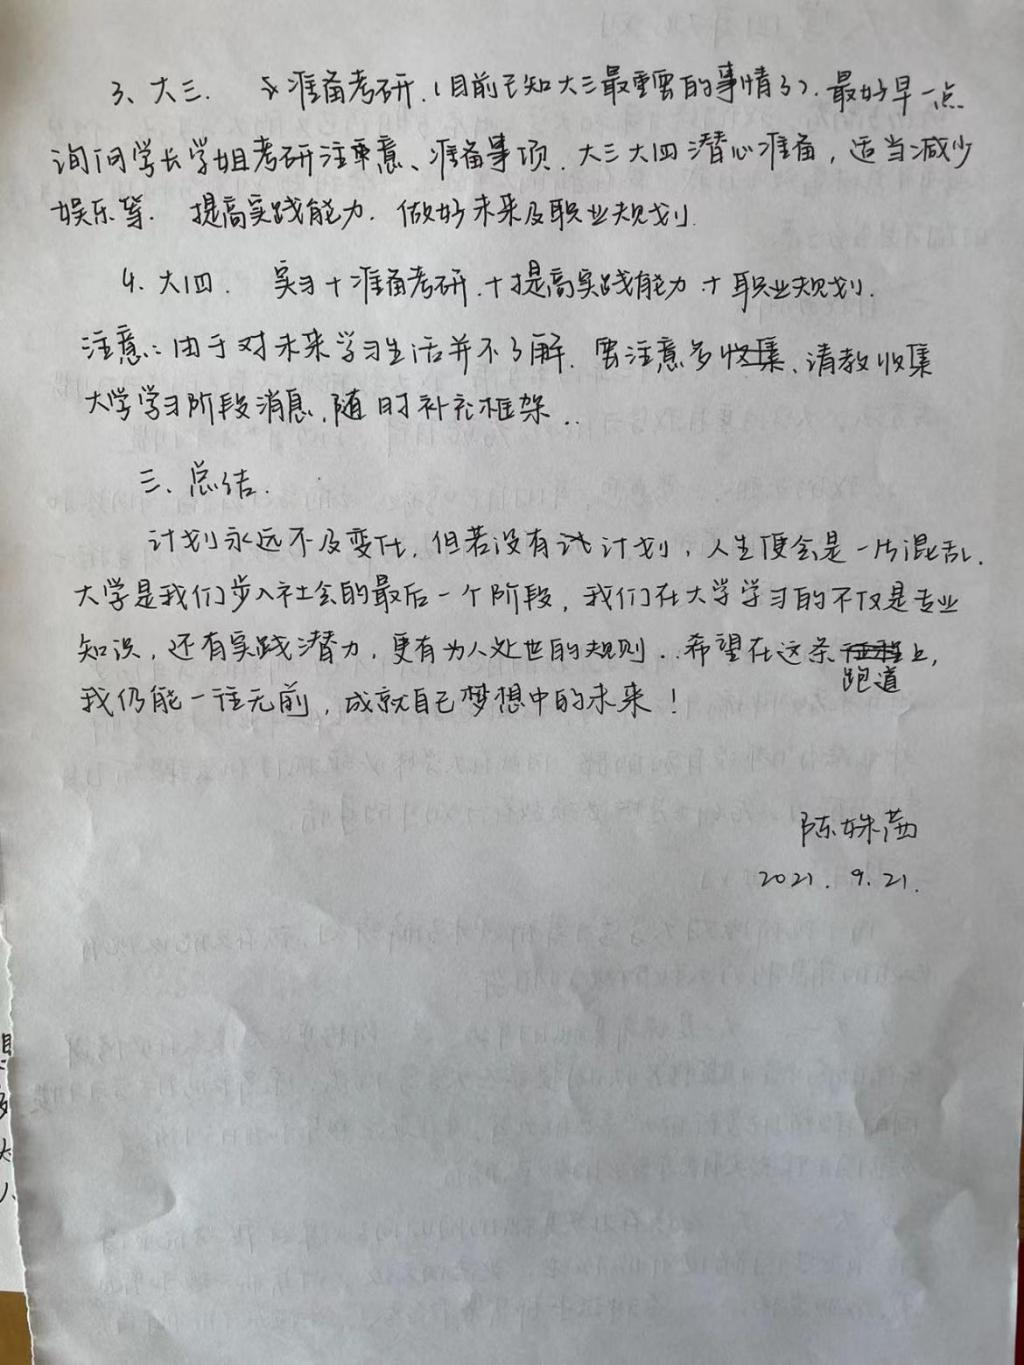 3、大三. 准备考研.(目前已知大三最重要的事情了).最好早一点
询问学长学姐考研注重意、准备事项.大三大四潜心准备,适当减少
娱乐等. 提高实践能力. 做好未来及职业规划.
4、大四. 实习+准备考研.+提高实践能力+职业规划.
注意:由于对未来学习生活并不了解.要注意多收集、请教收集
大学学习阶段消息,随时补充框架..
三、总结.
计划永远不及变化,但若没有计划,人生便会是一片混乱.
大学是我们步入社会的最后一个阶段,我们在大学学习的不仅是专业
知识,还有实践潜力,更有为人处世的规则..希望在这条征程上,
跑道
我仍能一往无前,成就自己梦想中的未来!
陈姝茜
2021.9.21.